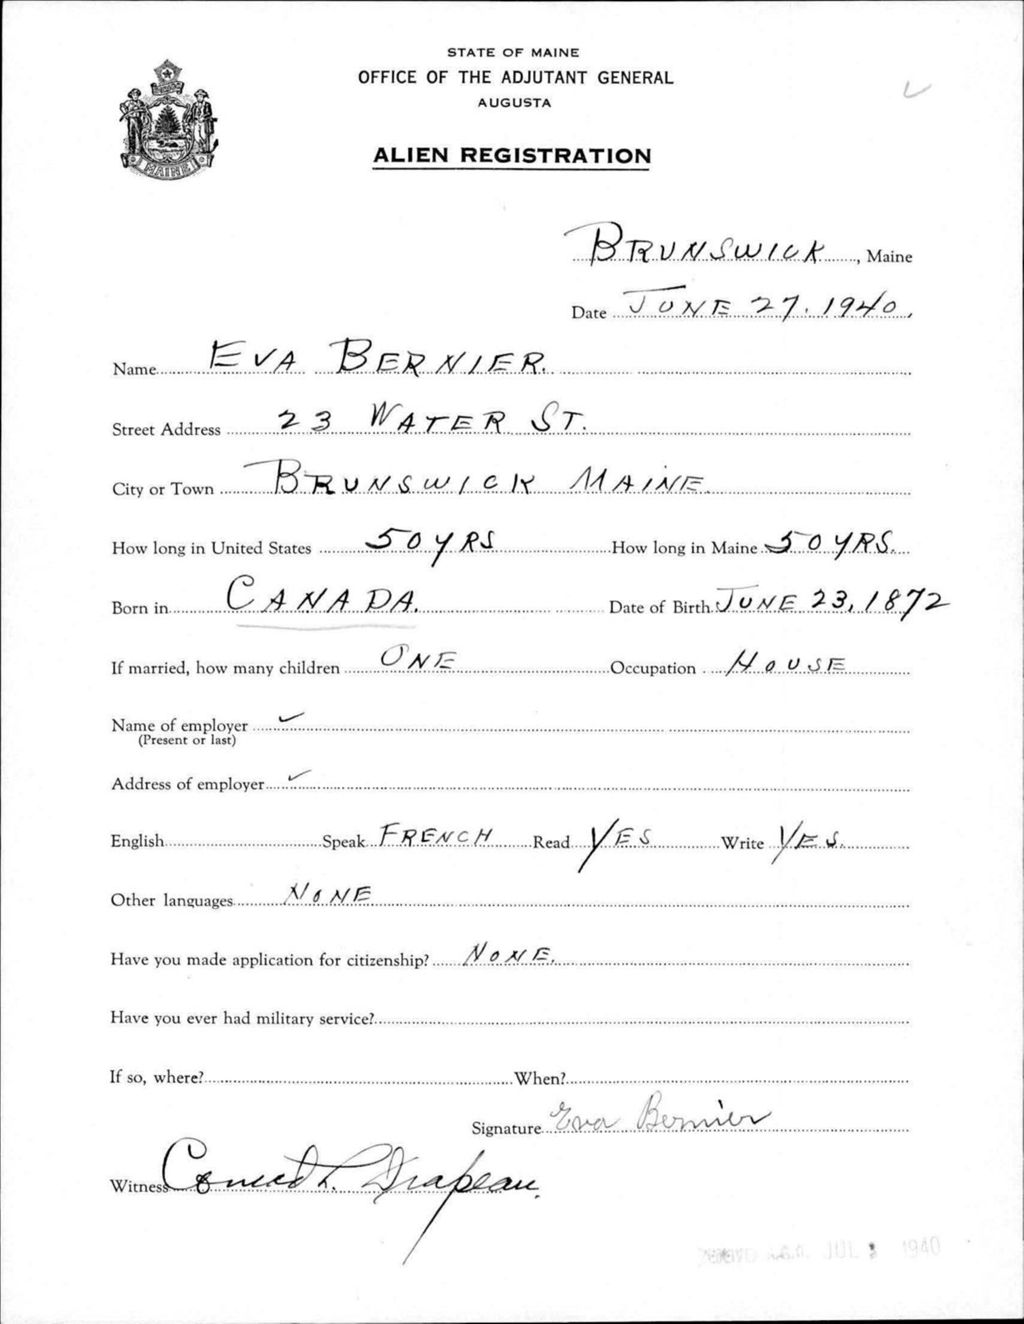 STATE OF MAINE
OFFICE OF THE ADJUTANT GENERAL
AUGUSTA
ALIEN REGISTRATION
MAINE
BRUNSWICK, Maine
Date JUNE 27, 1940,
Name EVA BERNIER.
Street Address 23 WATER ST.
City or Town BRUNSWICK MAINE.
How long in United States 50 YRS How long in Maine 50 YRS.
Born in CANADA. Date of Birth JUNE 23, 1872
If married, how many children ONE Occupation HOUSE
Name of employer ✓
(Present or last)
Address of employer ✓
English Speak FRENCH Read YES Write YES.
Other languages NONE
Have you made application for citizenship? NONE.
Have you ever had military service?
If so, where? When?
Signature Eva Bernier
Witness L. Drapeau.
JUL 1940